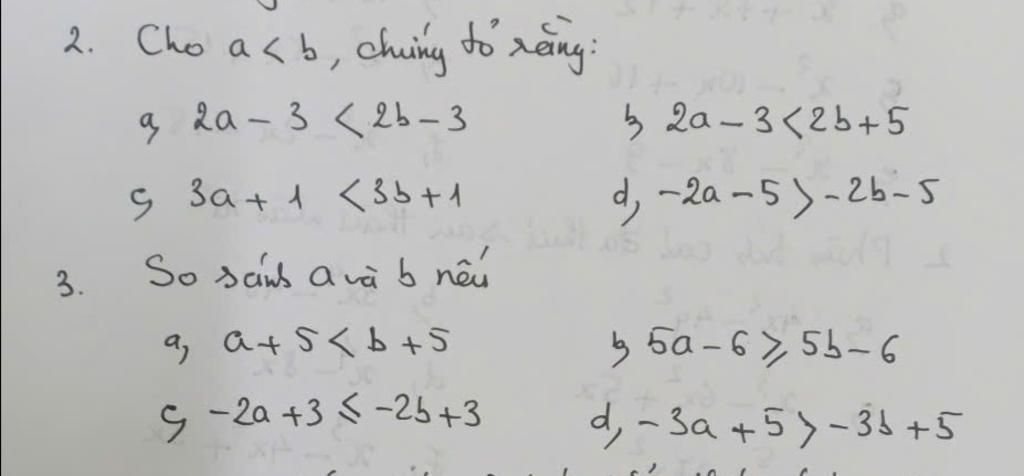 2. Cho a < b, chứng tỏ rằng:
a, 2a - 3 < 2b - 3 b, 2a - 3 < 2b + 5
c, 3a + 1 < 3b + 1 d, -2a - 5 > -2b - 5
3. So sánh a và b nếu
a, a + 5 < b + 5 b, 5a - 6 ⩾ 5b - 6
c, -2a + 3 ⩽ -2b + 3 d, -3a + 5 > -3b + 5